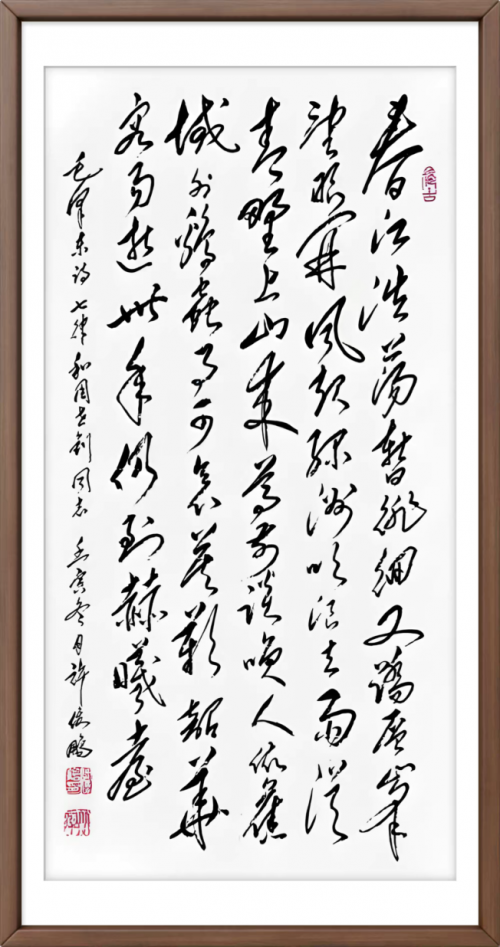 春江浩蕩暫徘徊又踏层峯
望眼開风起緑洲吹浪去雨從
青野上山来尊前談咲人依舊
域外鷄虫事可哀莫歎韶華
容易逝卅年仍到赫曦臺
毛泽东诗 七律和周世钊同志 壬寅冬月许俊鹏